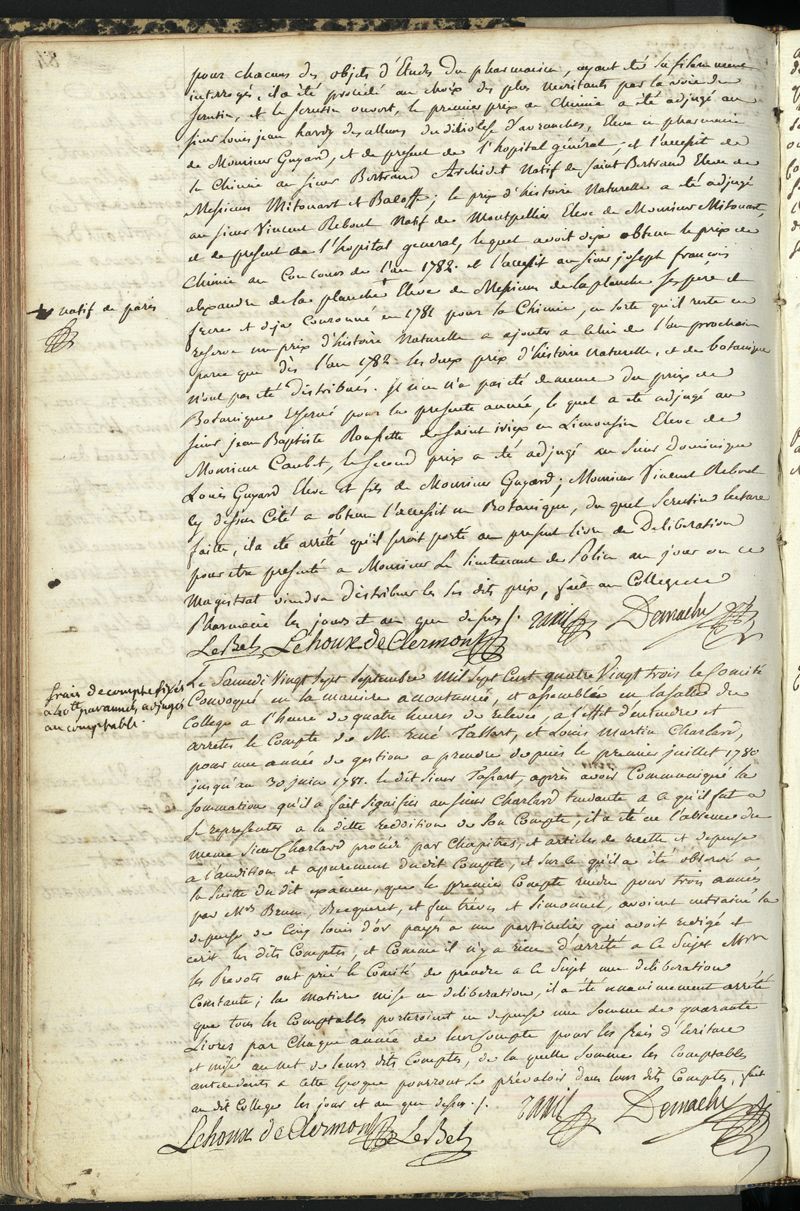 pour chacuns des objets d'Etude du pharmacien, ayant été suffisamment
interrogés, il a été procédé au choix des plus méritants par la voie du
scrutin, et le scrutin ouvert, le premier prix de Chimie a été adjugé au
sieur Louis jean hardy desallurs du diocèse d'avranches, Eleve en pharmacie
de Monsieur Guyard, et de present de l'hopital général; et l'accessit de
la Chimie au sieur Bertrand Archidet Natif de Saint Bertrand Eleve de
Messieurs Mitouart et Baloffe; le prix d'histoire Naturelle a été adjugé
au sieur Vincent Reboul Natif de Montpellier Eleve de Monsieur Mitouart,
et de present de l'hopital general, lequel avoit deja obtenu le prix de
Chimie au Concours de l'an 1782. et l'accessit au sieur joseph françois
alexandre de la planche + Eleve de Messieurs de la planche ses pere et
frere et deja Couronné en 1781 pour la Chimie, en sorte qu'il reste en
reserve un prix d'histoire Naturelle a ajouter a celui de l'an prochain
parce que dès l'an 1782 les deux prix d'histoire Naturelle, et de botanique
n'ont pas été distribués. Il n'en n'a pas été de meme du prix de
Botanique reservé pour la presente année, le quel a été adjugé au
sieur jean Baptiste Roulfette de saint irieix en Limousin Eleve de
Monsieur Caubet, le second prix a été adjugé au sieur Dominique
Louis Guyard Eleve et fils de Monsieur Guyard; Monsieur Vincent Reboul
cy dessus Cité a obtenu l'accessit en Botanique, du quel scrutin lecture
faitte, il a été arrêté qu'il seroit porté au present livre de Deliberation
pour etre presenté a Monsieur Le lieutenant de Police au jour ou ce
Magistrat viendra distribuer les dits prix, fait au College de
Pharmacie les jours et an que dessus /.
Demachy
LeBel Lehoux de Clermont
+ natif de paris
frais de compte fixés
a 40 tt par année, adjugés
au comptable.
Le Samedi Vingt Sept Septembre Mil Sept Cent quatre Vingt trois le Comité
Convoqué en la maniere accoutumée, et assemblée en la salle du
College a l'heure de quatre heures de relevée, a l'effet d'entendre et
arreter le Compte de Mrs. René Tassart, et Louis Martin Charlard,
pour une année de gestion a prendre depuis le premier juillet 1780
jusqu'au 30 juin 1781. le dit sieur Tassart, après avoir Communiqué la
sommation qu'il a fait signifier au sieur Charlard tendante a ce qu'il fut a
se representer a la ditte reddition de son Compte; il a été en l'absence du
meme sieur Charlard procédé par Chapitres, et articles de recette et depense
a l'audition et apurement du dit Compte, et sur ce qu'il a été observé a
la suitte du dit examen, que le premier Compte rendu pour trois années
par Mrs. Brun, Becqueret, et feu trévez et Simonnet, avoient entrainé la
depense de Cinq louis d'or payés a un particulier qui avoit redigé et
ecrit les dits Comptes, et Comme il n'y a rien d'arrêté a ce sujet Mrs
les Prevots ont prié le Comité de prendre a ce sujet une deliberation
Constante; la Matiere mise en deliberation, il a été unanimement arrêté
que tous les Comptables porteroient en depense une somme de quarante
Livres par Chaque année de leur Compte pour les frais d'ecriture
et mise au net de leurs dits Comptes, de la quelle somme les Comptables
antecedents a cette époque pourront se prévaloir dans leurs dits Comptes, fait
au dit College les jour et an que dessus /.
Demachy
Lehoux de Clermont LeBel